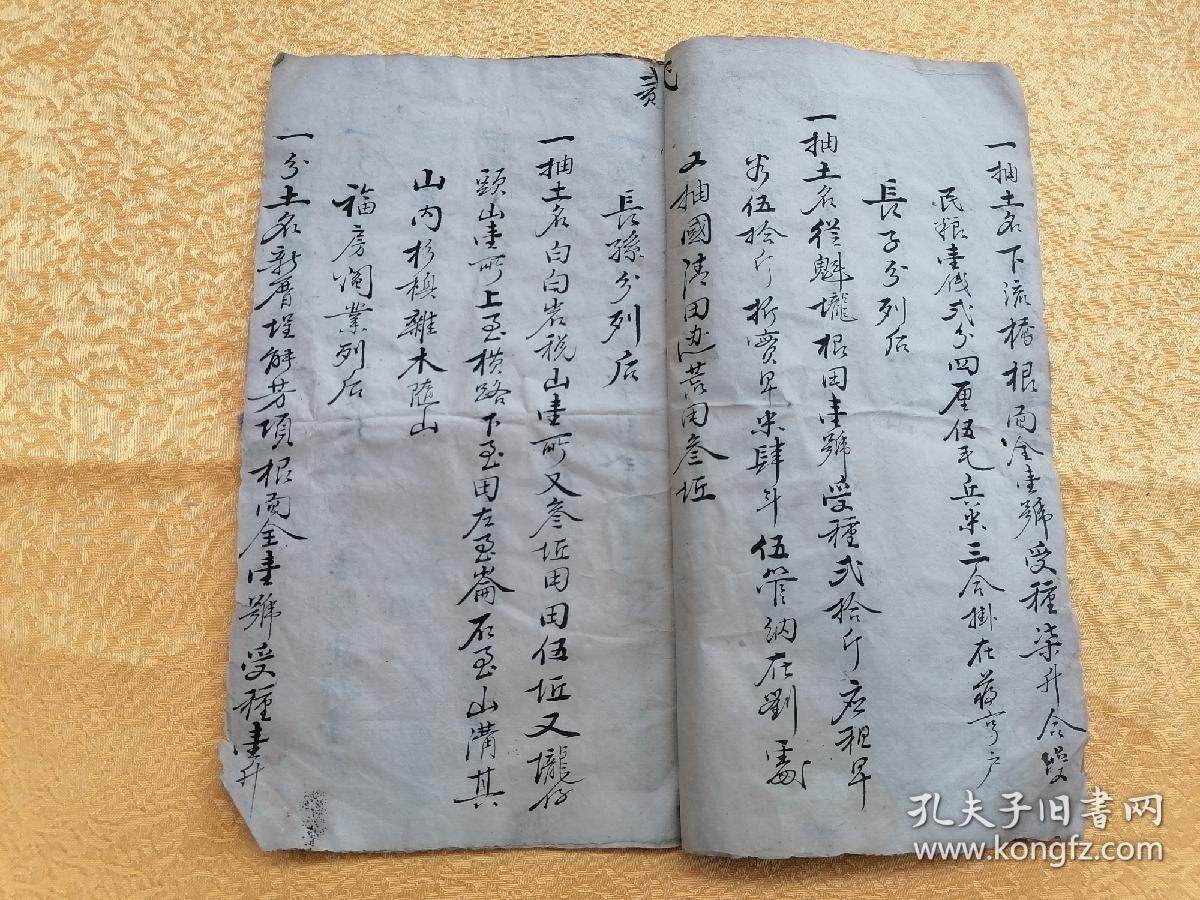 一抽土名下流橋根面全壹號受種柒升合
民粮壹錢弍分四厘伍毛兵米三合掛在
户
長子分列后
一抽土名從魁壠根田壹號受種弍拾斤应租早
谷伍拾斤折實早米肆斗伍管納在劉處
又抽國清田边荒田叁坵
長孫分列后
一抽土名白白岩税山壹所又叁坵田田伍坵又壠仔
頭山壹所上至横路下至田左至崙右至山溝其
山内杉槙雜木隨山
福房阄業列后
一分土名新厝埕解芳項根面全壹號受種壹升
孔夫子旧书网
www.kongfz.com